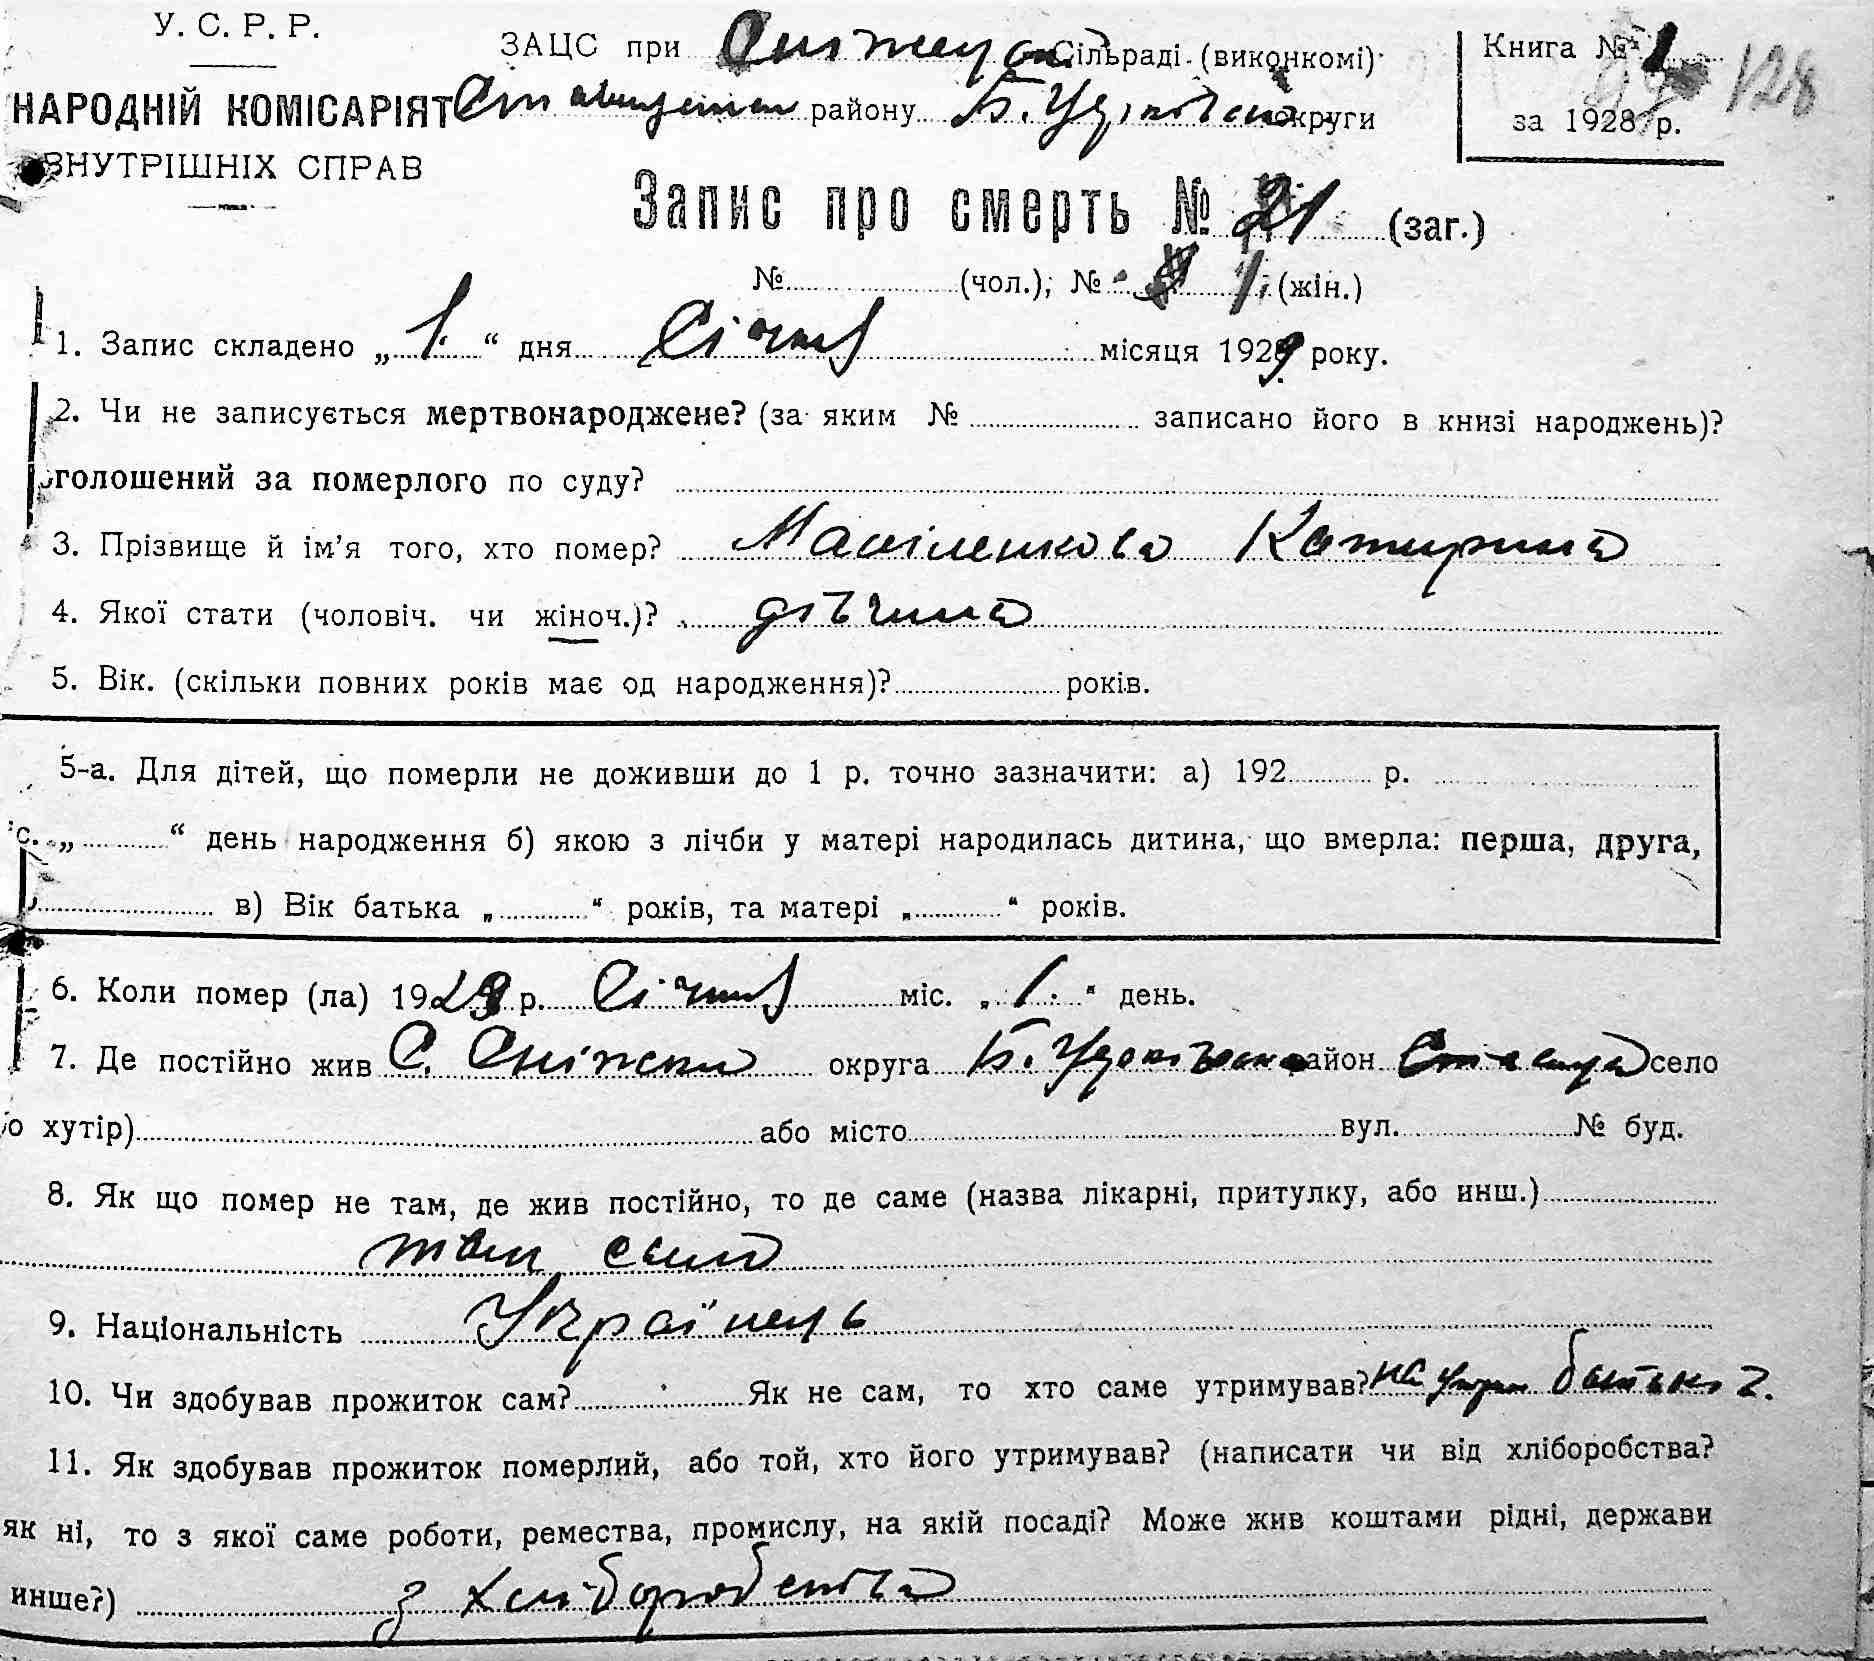 У. С. Р. Р.
НАРОДНІЙ КОМІСАРІЯТ
ВНУТРІШНІХ СПРАВ
ЗАЦС при Сільраді (виконкомі)
району Б. Церківська округи
Книга № 1 128
за 1928 р.
Запис про смерть № 21 (заг.)
№ (чол.); № 1 (жін.)
1. Запис складено „ 1 “ дня Січня місяця 1929 року.
2. Чи не записується мертвонароджене? (за яким № записано його в книзі народжень)?
оголошений за померлого по суду?
3. Прізвище й ім’я того, хто помер? Катирина
4. Якої стати (чоловіч. чи жіноч.)? дівчина
5. Вік. (скільки повних років має од народження)? років.
5-а. Для дітей, що померли не доживши до 1 р. точно зазначити: а) 192 р.
с. „ “ день народження б) якою з лічби у матері народилась дитина, що вмерла: перша, друга,
в) Вік батька „ “ років, та матері „ “ років.
6. Коли помер (ла) 1929 р. Січня міс. „ 1. “ день.
7. Де постійно жив С. Сніжки округа Б. Церківська район село
о хутір) або місто вул. № буд.
8. Як що помер не там, де жив постійно, то де саме (назва лікарні, притулку, або инш.)
там само
9. Національність Українець
10. Чи здобував прожиток сам? Як не сам, то хто саме утримував? на утрим батьків
11. Як здобував прожиток померлий, або той, хто його утримував? (написати чи від хліборобства?
як ні, то з якої саме роботи, ремества, промислу, на якій посаді? Може жив коштами рідні, держави
инше?) з хліборобства